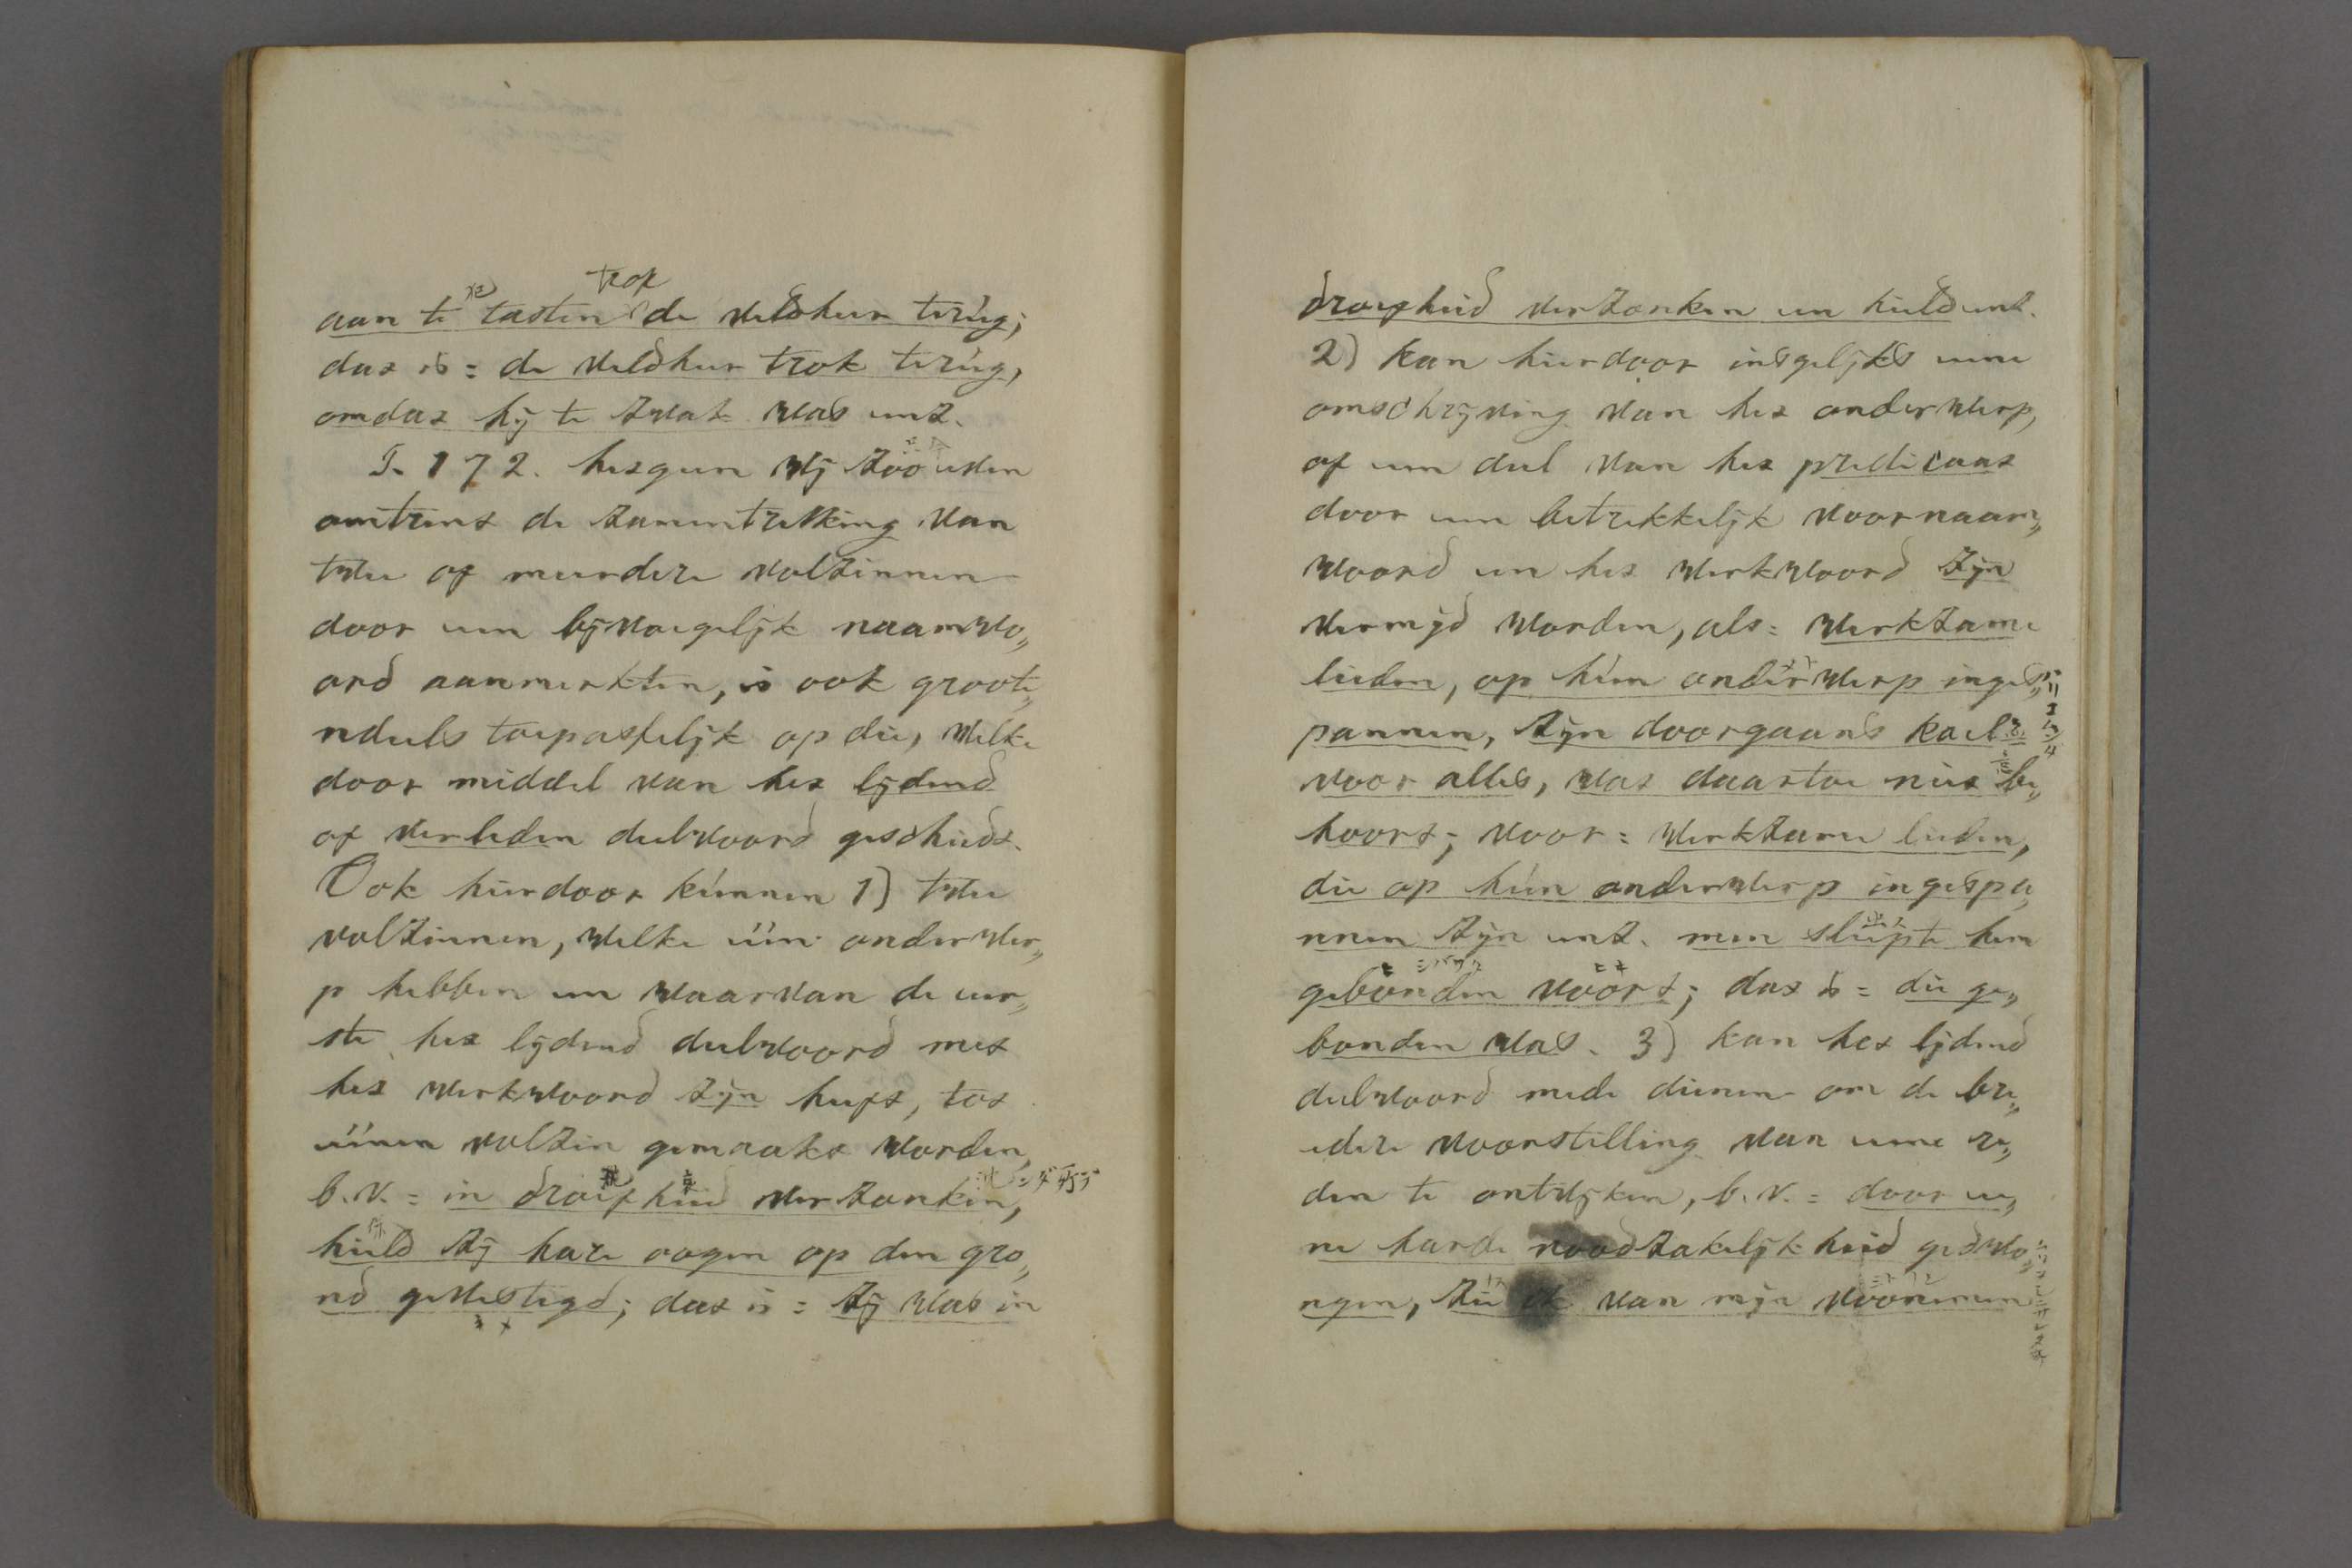 trok
aan te tasten de veldheer terúg;
dat is = de veldheer trok terúg,
omdat hij te zwak was enz.
§. 172. hetgeen wij zoo even
omtrent de zamentrekking van
twee of meerdere volzinnen
door een bijvoegelijk naamwo„
ord aanmerkten, is ook groote„
ndeels toepasselijk op die, welke
door middel van het lijdend
of verleden deelwoord geschiedt.
Ook hierdoor kúnnen 1) twee
volzinnen, welke één onderwer„
p hebben en waarvan de eer„
ste het lijdend deelwoord met
het werkwoord zijn heeft, tot
éénen volzin gemaakt worden,
b.v. = in droefheid verzonken,
hield zij hare oogen op den gro„
nd gevestigd; dat is = zij was in
droefheid verzonken en hield enz.
2) kan hierdoor insgelijks eene
omschrijving van het onderwerp,
of een deel van het predicaat
door een betrekkelijk voornaam„
woord en het werkwoord zijn
vermijd worden, als = werkzame
lieden, op hún onderwerp inges„
pannen, zijn doorgaans koel
voor alles, wat daartoe niet be„
hoort; voor = werkzame lieden,
die op hún onderwerp ingespa„
nnen zijn enz. men sleepte hem
gebonden voort; dat is = die ge„
bonden was. 3) kan het lijdend
deelwoord mede dienen om de bre„
edere voorstelling van eene re„
den te ontwijken, b.v. = door ee„
ne harde noodzakelijkheid gedwo„
ngen, zie ik van mijn voornemen